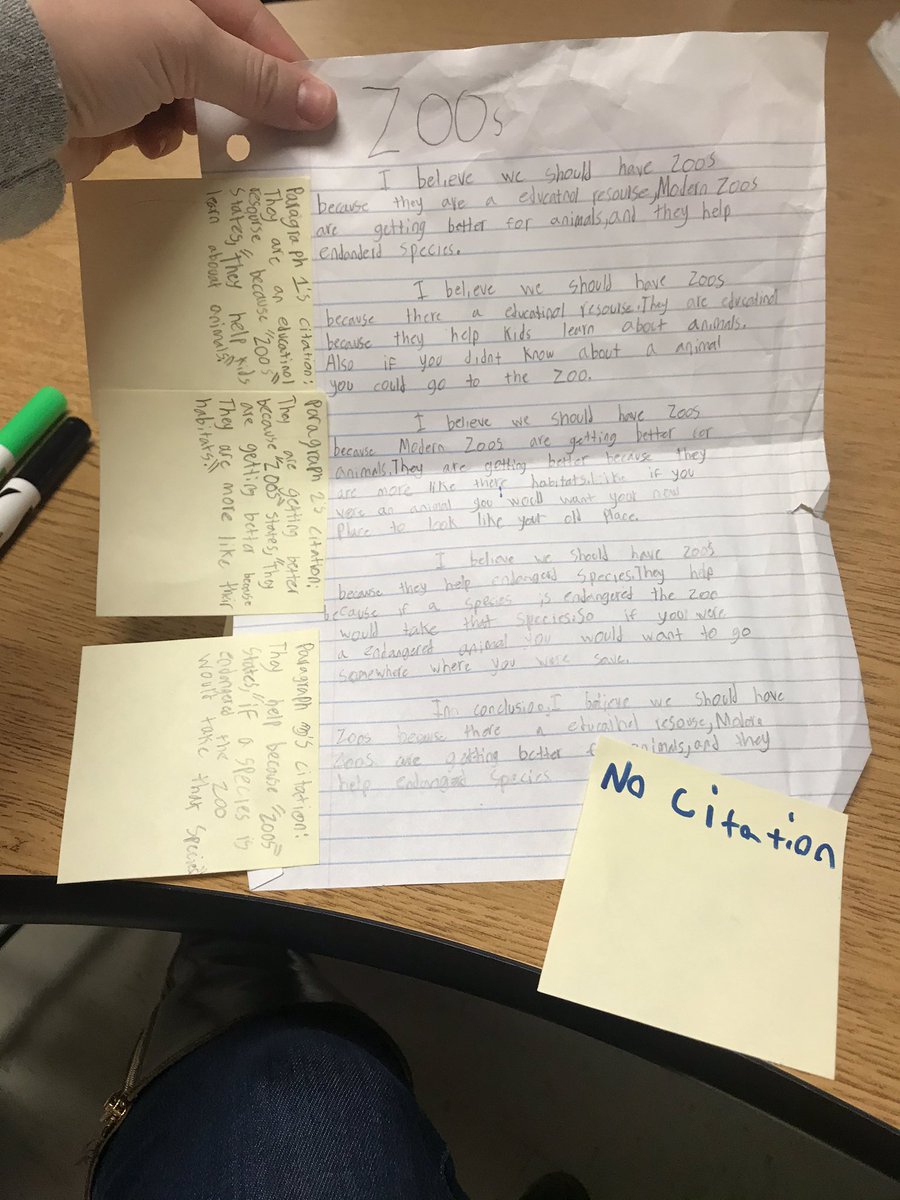 ZOOs
I believe we should have Zoos
because they are a educatinol resourse,Modern Zoos
are getting better for animals,and they help
endanderd species.
I believe we should have Zoos
because there a educatinol resourse.They are educatinol
because they help Kids learn about animals.
Also if you didnt know about a animal
you could go to the Zoo.
I believe we should have Zoos
because Modern Zoos are getting better for
animals.They are getting better because they
are more like there habitats.Like if you
were an animal you would want your new
Place to look like your old Place.
I believe we should have Zoos
because they help endangerd species.They help
because if a species is endangered the Zoo
would take that species.So if you were
a endangered animal you would want to go
somewhere where you were save.
Inn conclusion,I believe we should have
Zoos because there a resouse,Modern
Zoos are getting better animals,and they
help endangerd species
Paragraph 1's citation:
They are an educatinol
resourse because "Zoos"
states,"they help kids
learn about animals."
Paragraph 2's citation:
They are getting better
because "Zoos" states,"they
are getting better because
They are more like their
habitats."
Paragraph 3's citation:
They help because "Zoos"
states,"if a species is
endangered the Zoo
would take that species
No Citation